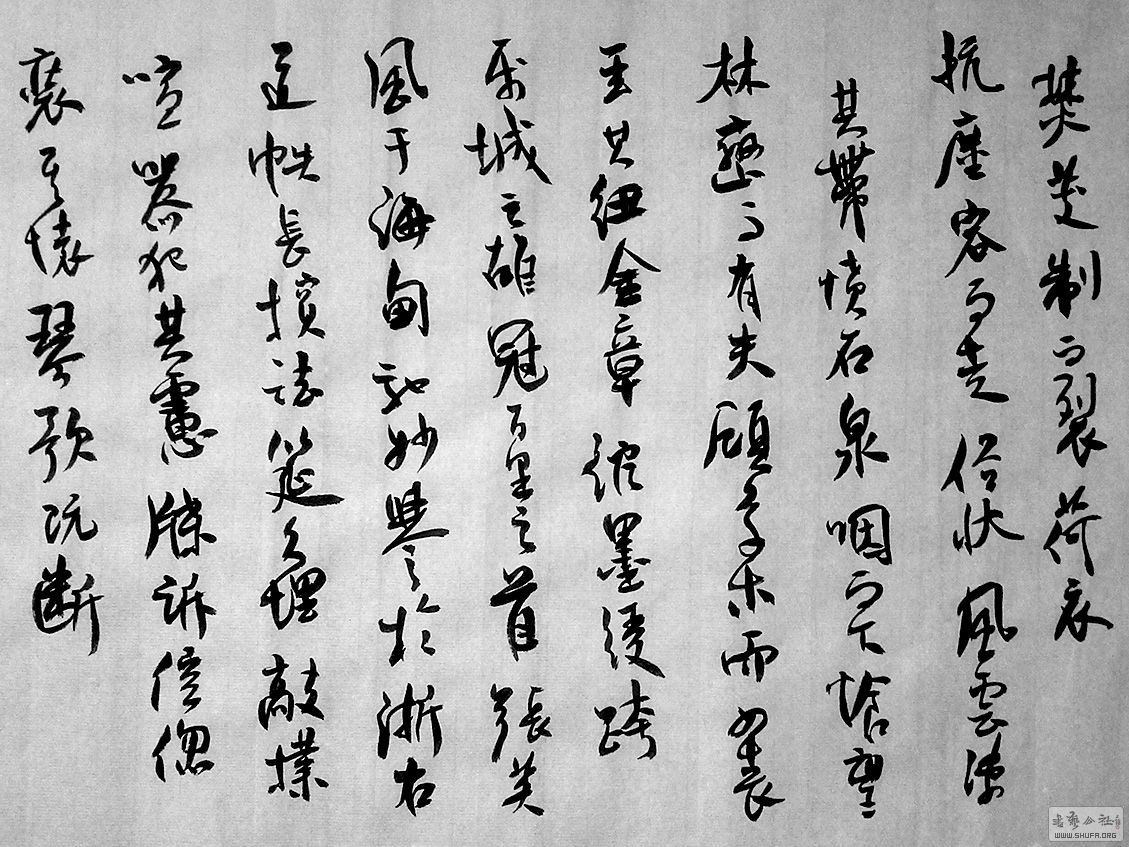 焚芰制而裂荷衣
抗塵容而走俗狀風雲悽
其帶憤石泉咽而下愴望
林巒而有失顧草木而如喪
至其紐金章綰墨綬跨
屬城之雄冠百里之首張英
風于海甸馳妙譽於浙右
道帙長擯法筵久埋敲撲
喧囂犯其慮牒訴倥偬
裝其懷琴歌既斷
書藝公社
WWW.SHUFA.ORG